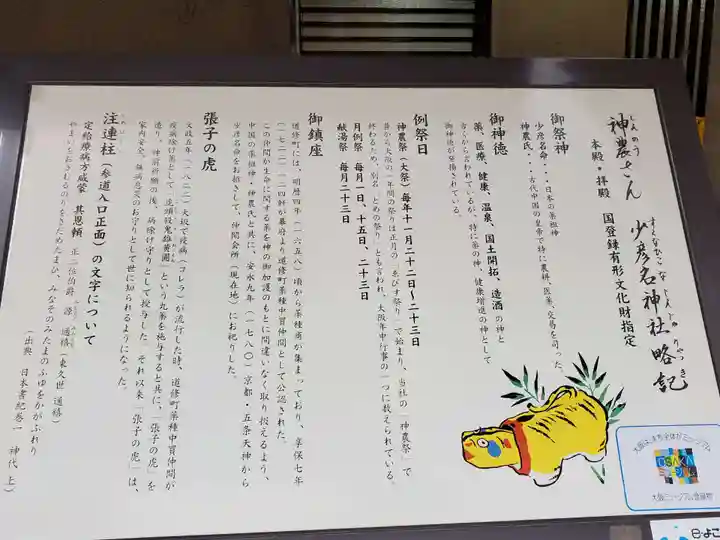 しんのう
神農さん
すくなひこなじんじゃりゃっき
少彦名神社略記
本殿・拝殿 国登録有形文化財指定
御祭神
少彦名命・・・日本の薬祖神
神農氏・・・古代中国の皇帝で特に農耕、医薬、交易を司った。
御神徳
薬、医療、健康、温泉、国土開拓、造酒の神と
古くから言われているが、特に薬の神、健康増進の神として
御神徳が発揚されている。
例祭日
神農祭(大祭)毎年十一月二十二日~二十三日
昔から大阪の一年間の祭りは正月の「ゑびす祭り」で始まり、当社の「神農祭」で
終わるため、別名「とめの祭り」とも言われ、大阪年中行事の一つに数えられている。
月例祭 毎月一日、十五日、二十三日
献湯祭 毎月二十三日
御鎮座
道修町には、明暦四年(一六五八)頃から薬種商が集まっており、享保七年
(一七二二)一二四軒が幕府より道修町薬種中買仲間として公認された。
この仲間が生命に関する薬を神の御加護のもとに間違いなく取り扱えるよう、
中国の薬祖神・神農氏と共に、安永九年(一七八〇)京都・五条天神から
少彦名命をお招きして、仲間会所(現在地)にお祀りした。
張子の虎
文政五年(一八二二)大坂で疫病(コレラ)が流行した時、道修町薬種中買仲間が
疫病除け薬として「虎頭殺鬼雄黄圓」という丸薬を施与すると共に、「張子の虎」を
造り、神前祈願の後、病除け守りとして授与した。それ以来「張子の虎」は、
家内安全、無病息災のお守りとして世に知られるようになった。
注連柱(参道入口正面)の文字について
定給療病方咸蒙 其恩頼 正二位伯爵 源 通禧(東久世 通禧)
やまいをおさむるのりをさだめたまひ、みなそのみたまのふゆをかがふれり
(出典 日本書紀巻一 神代 上)
大阪は、まち全体がミュージアム
OSAKA
ミュージアム
大阪ミュージアム登録物